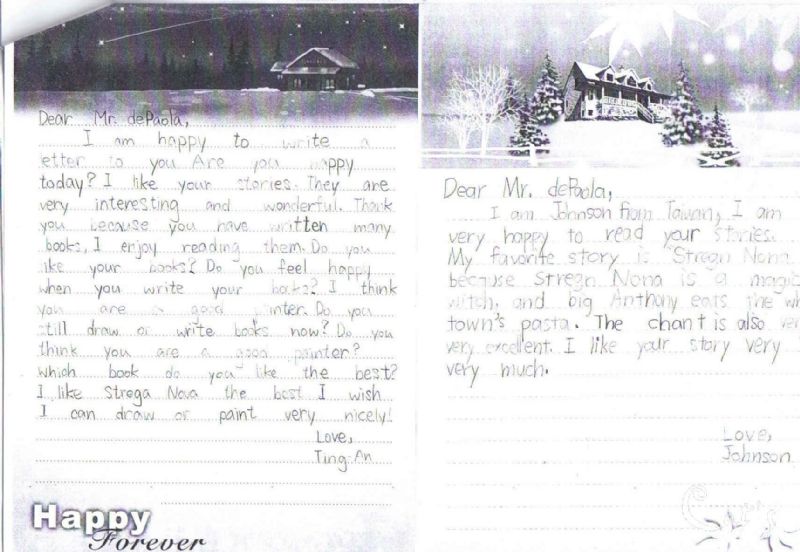 Dear Mr. dePaola,
I am happy to write a
letter to you Are you happy
today? I like your stories. They are
very interesting and wonderful. Thank
you because you have written many
books, I enjoy reading them. Do you
like your books? Do you feel happy
when you write your books? I think
you are a good painter. Do you
still draw or write books now? Do you
think you are a good painter?
Which book do you like the best?
I like Strega Nova the best I wish
I can draw or paint very nicely!
Love,
Ting-An
Happy
Forever
Dear Mr. dePaola,
I am Johnson from Taiwan, I am
very happy to read your stories.
My favorite story is "Stregn Nona
because Stregn Nona is a magic
witch, and big Anthony eats the wh
town's pasta. The chant is also ver
very excellent. I like your story very
very much.
Love,
Johnson